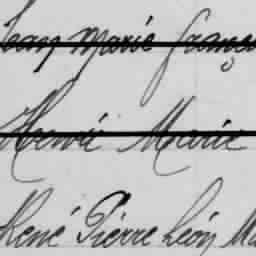 Jean Marie Franç
Henri Marie
René Pierre Léon Ma